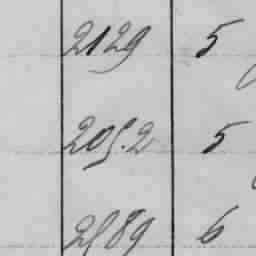 2129 5
205.2 5
2589 6